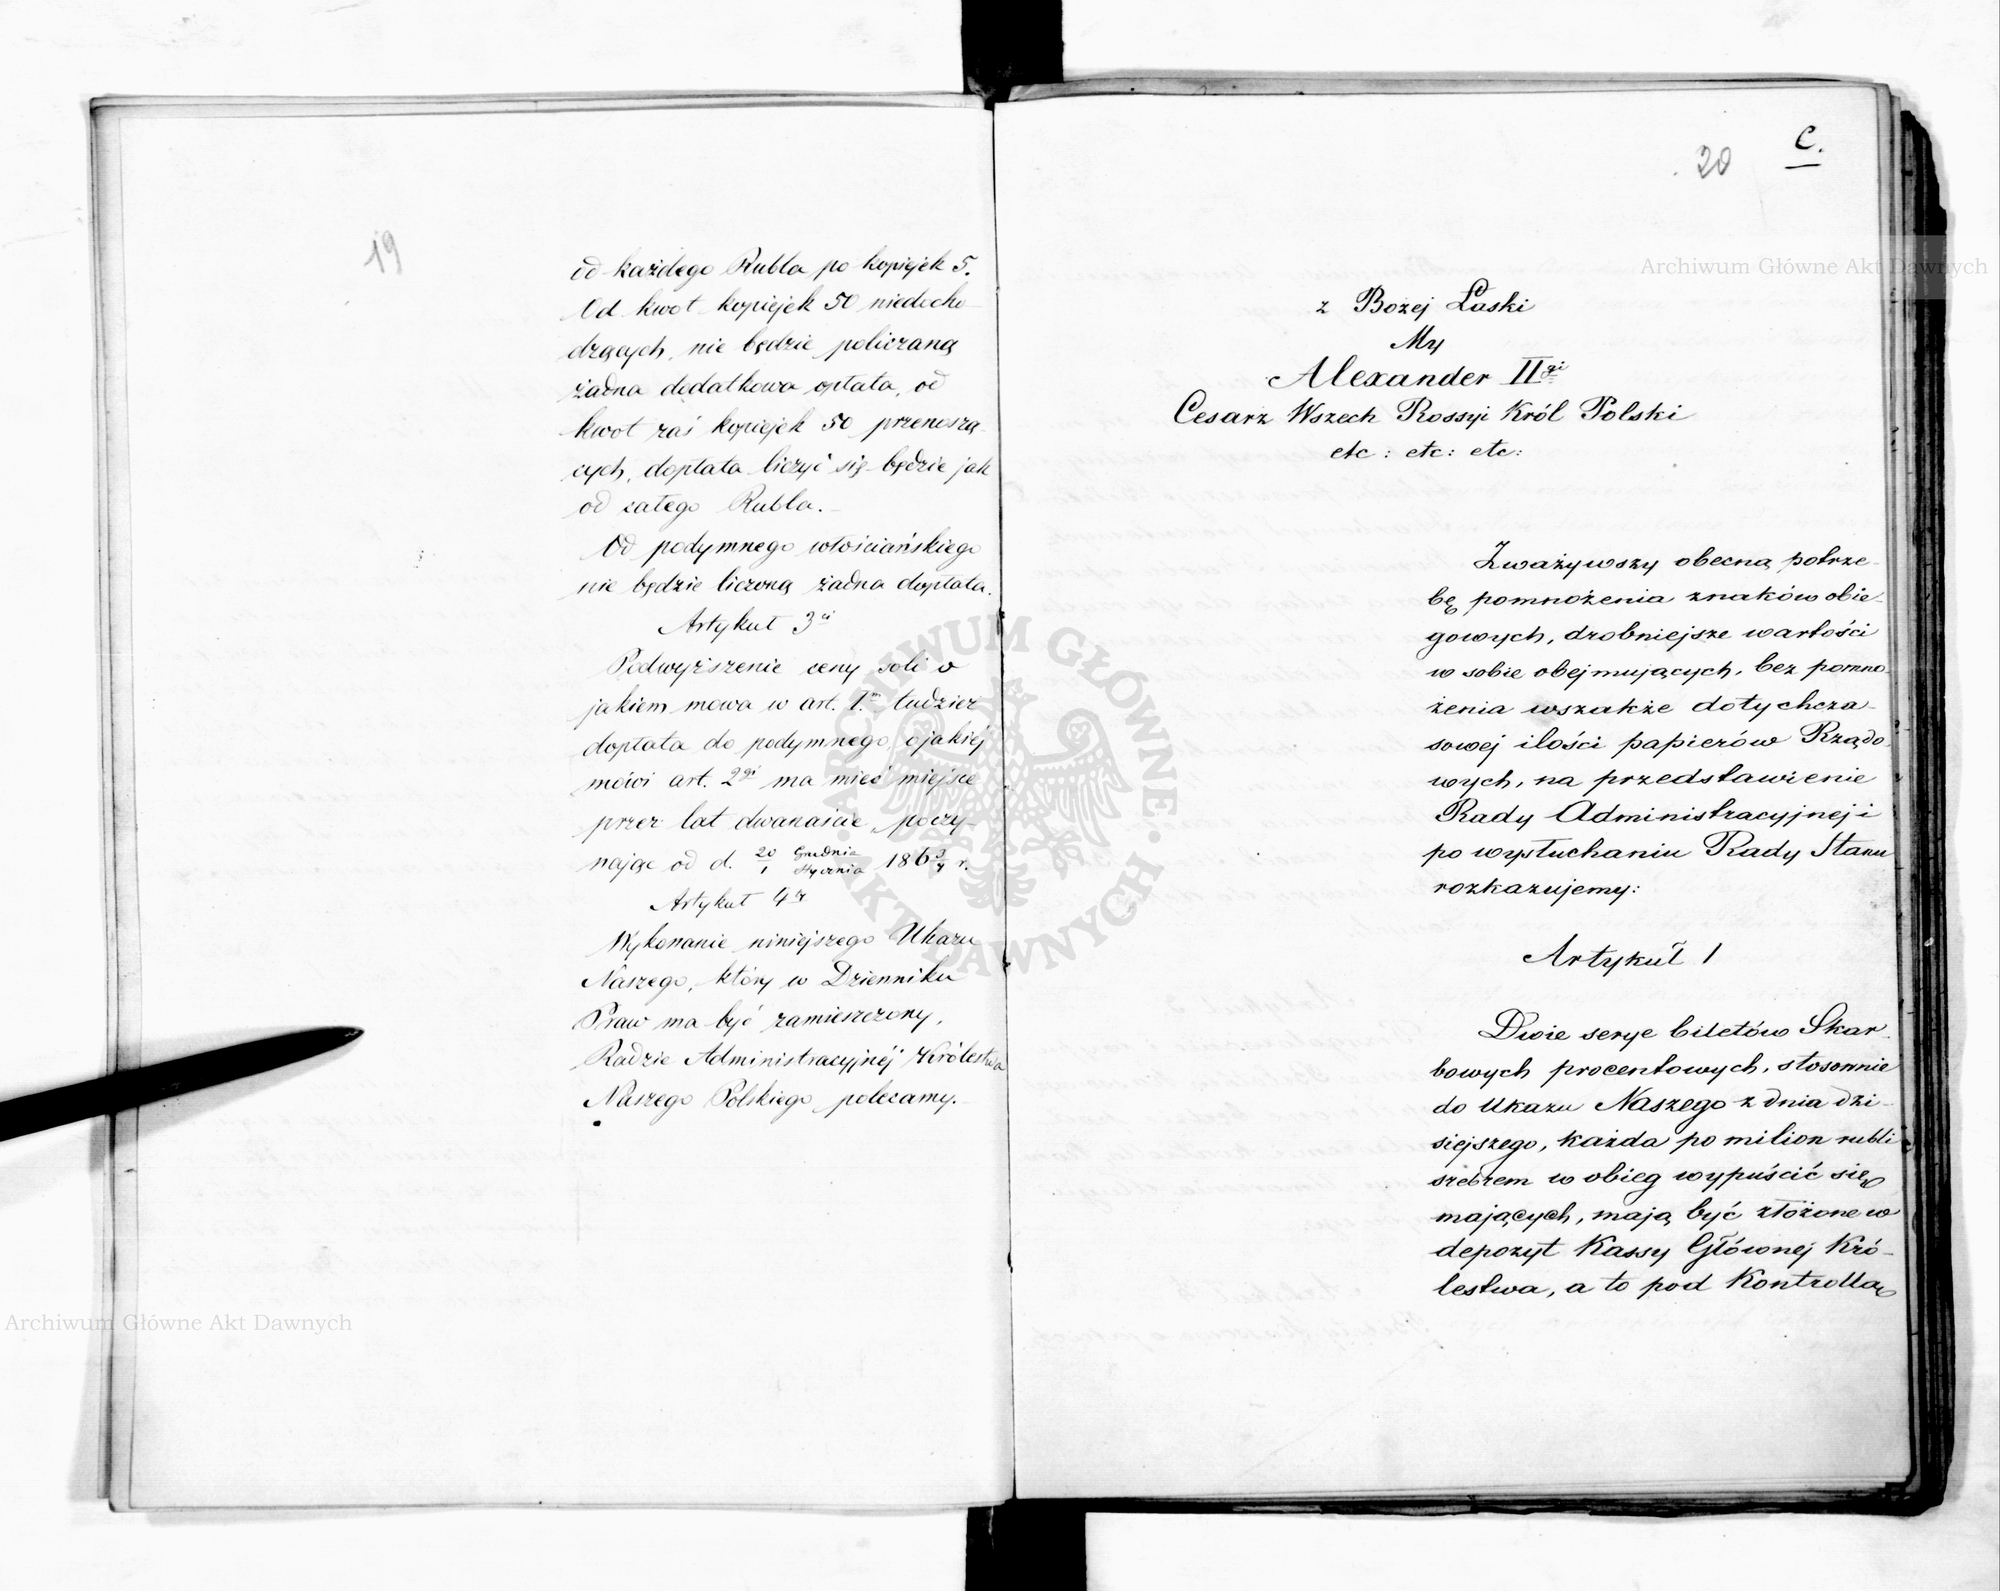 19
od każdego Rubla po kopiejek 5.
Od kwot kopiejek 50 niedocho-
dzących, nie będzie policzaną
żadna dodatkowa opłata, od
kwot zaś kopiejek 50 przenoszą-
cych, dopłata liczyć się będzie jak
od całego Rubla.
Od podymnego włościańskiego
nie będzie liczoną żadna dopłata.
Artykuł 3ci
Podwyższenie ceny soli o
jakiem mowa w art. I.m tudzież
dopłata do podymnego, o jakiéj
mówi art. 2gi ma mieć miejsce
przez lat dwanaście, poczy-
nając od d. 20/1 Grudnia/Stycznia 186 3/4 r.
Artykuł 4ty
Wykonanie niniejszego Ukazu
Naszego, który w Dzienniku
Praw ma być zamieszczony,
Radzie Administracyjnéj Królestwa
Naszego Polskiego polecamy.
20
C.
z Bożej Łaski
My
Alexander IIgi
Cesarz Wszech Rossyi Król Polski
etc: etc: etc:
Zważywszy obecną potrze-
bę pomnożenia znaków obie-
gowych, drobniejsze wartości
w sobie obejmujących, bez pomno-
żenia wszakże dotychcza-
sowej ilości papierów Rządo-
wych, na przedstawienie
Rady Administracyjnej i
po wysłuchaniu Rady Stanu
rozkazujemy:
Artykuł 1
Dwie serye biletów Skar-
bowych procentowych, stosownie
do Ukazu Naszego z dnia dzi-
siejszego, każda po milion rubli
srebrem w obieg wypuścić się
mających, mają być złożone w
depozyt Kassy Głównej Kró-
lestwa, a to pod Kontrollą
Archiwum Główne Akt Dawnych
Archiwum Główne Akt Dawnych
ARCHIWUM GŁÓWNE • AKT DAWNYCH •